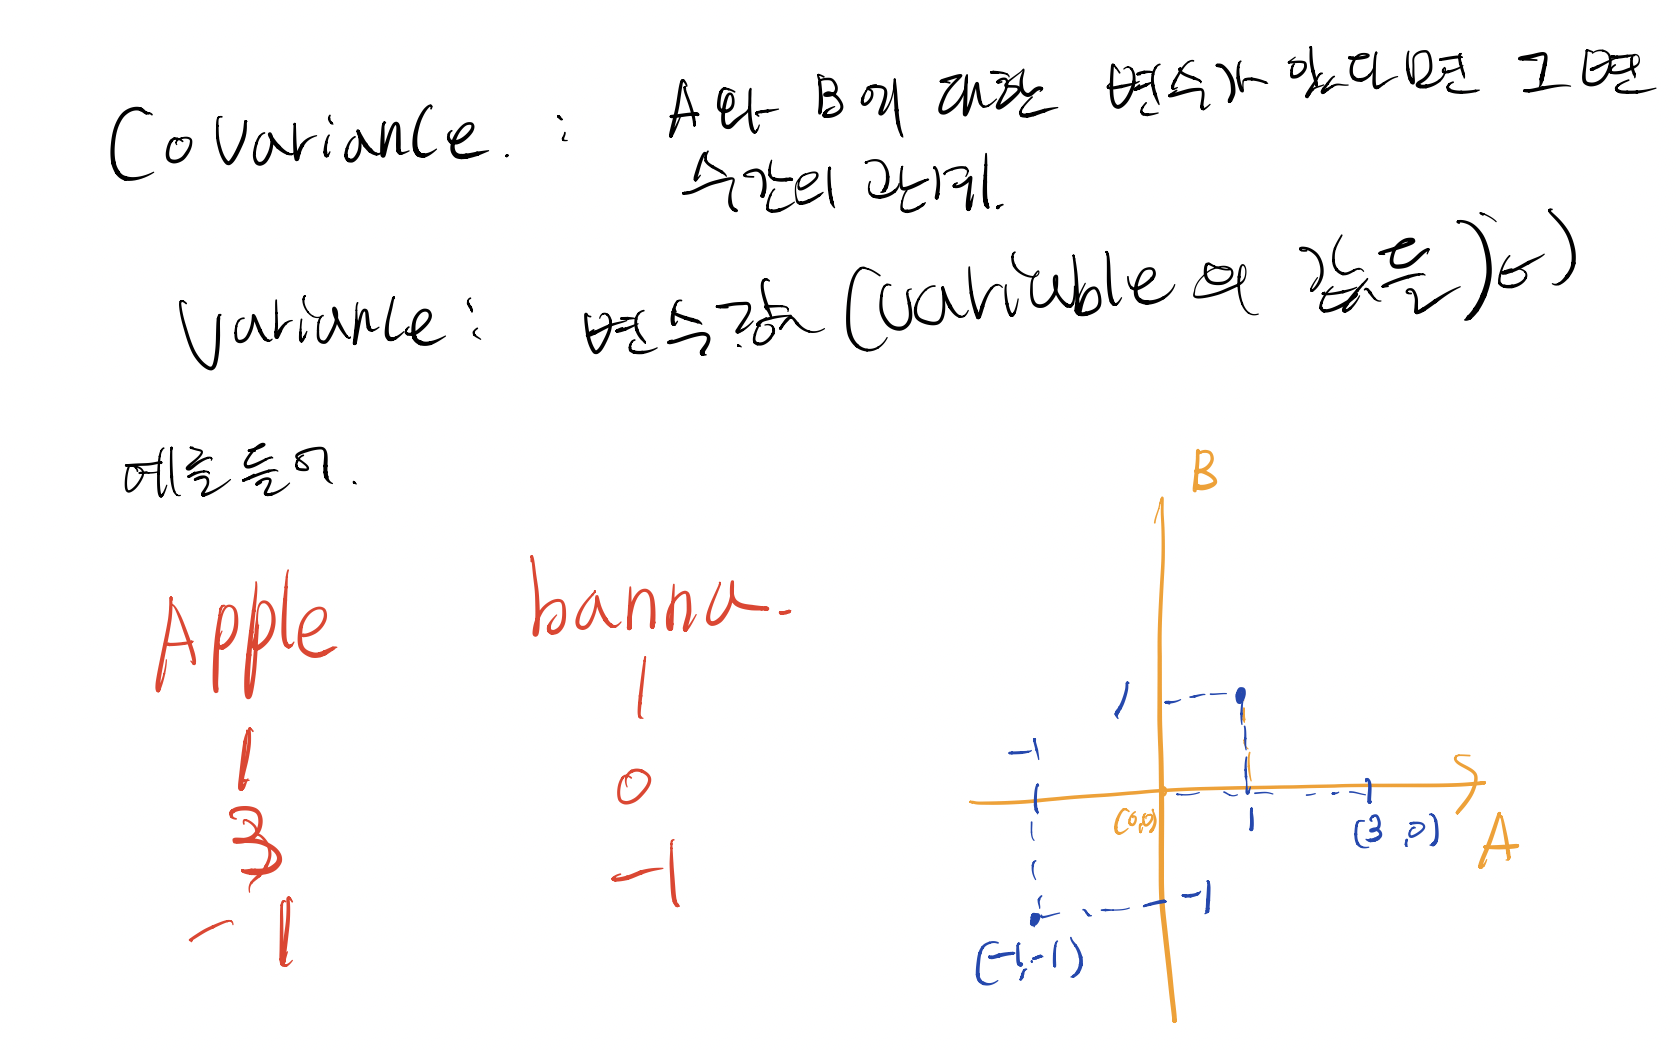 Covariance. : A와 B에 대한 변수가 있다면 그 변
수간의 관계.
Variance : 변수량 (variable의 값들)
예를들어.
Apple banna.
1 1
3 0
-1 -1
B
1
-1
(0,0) 1 (3,0)
A
-1
(-1,-1)